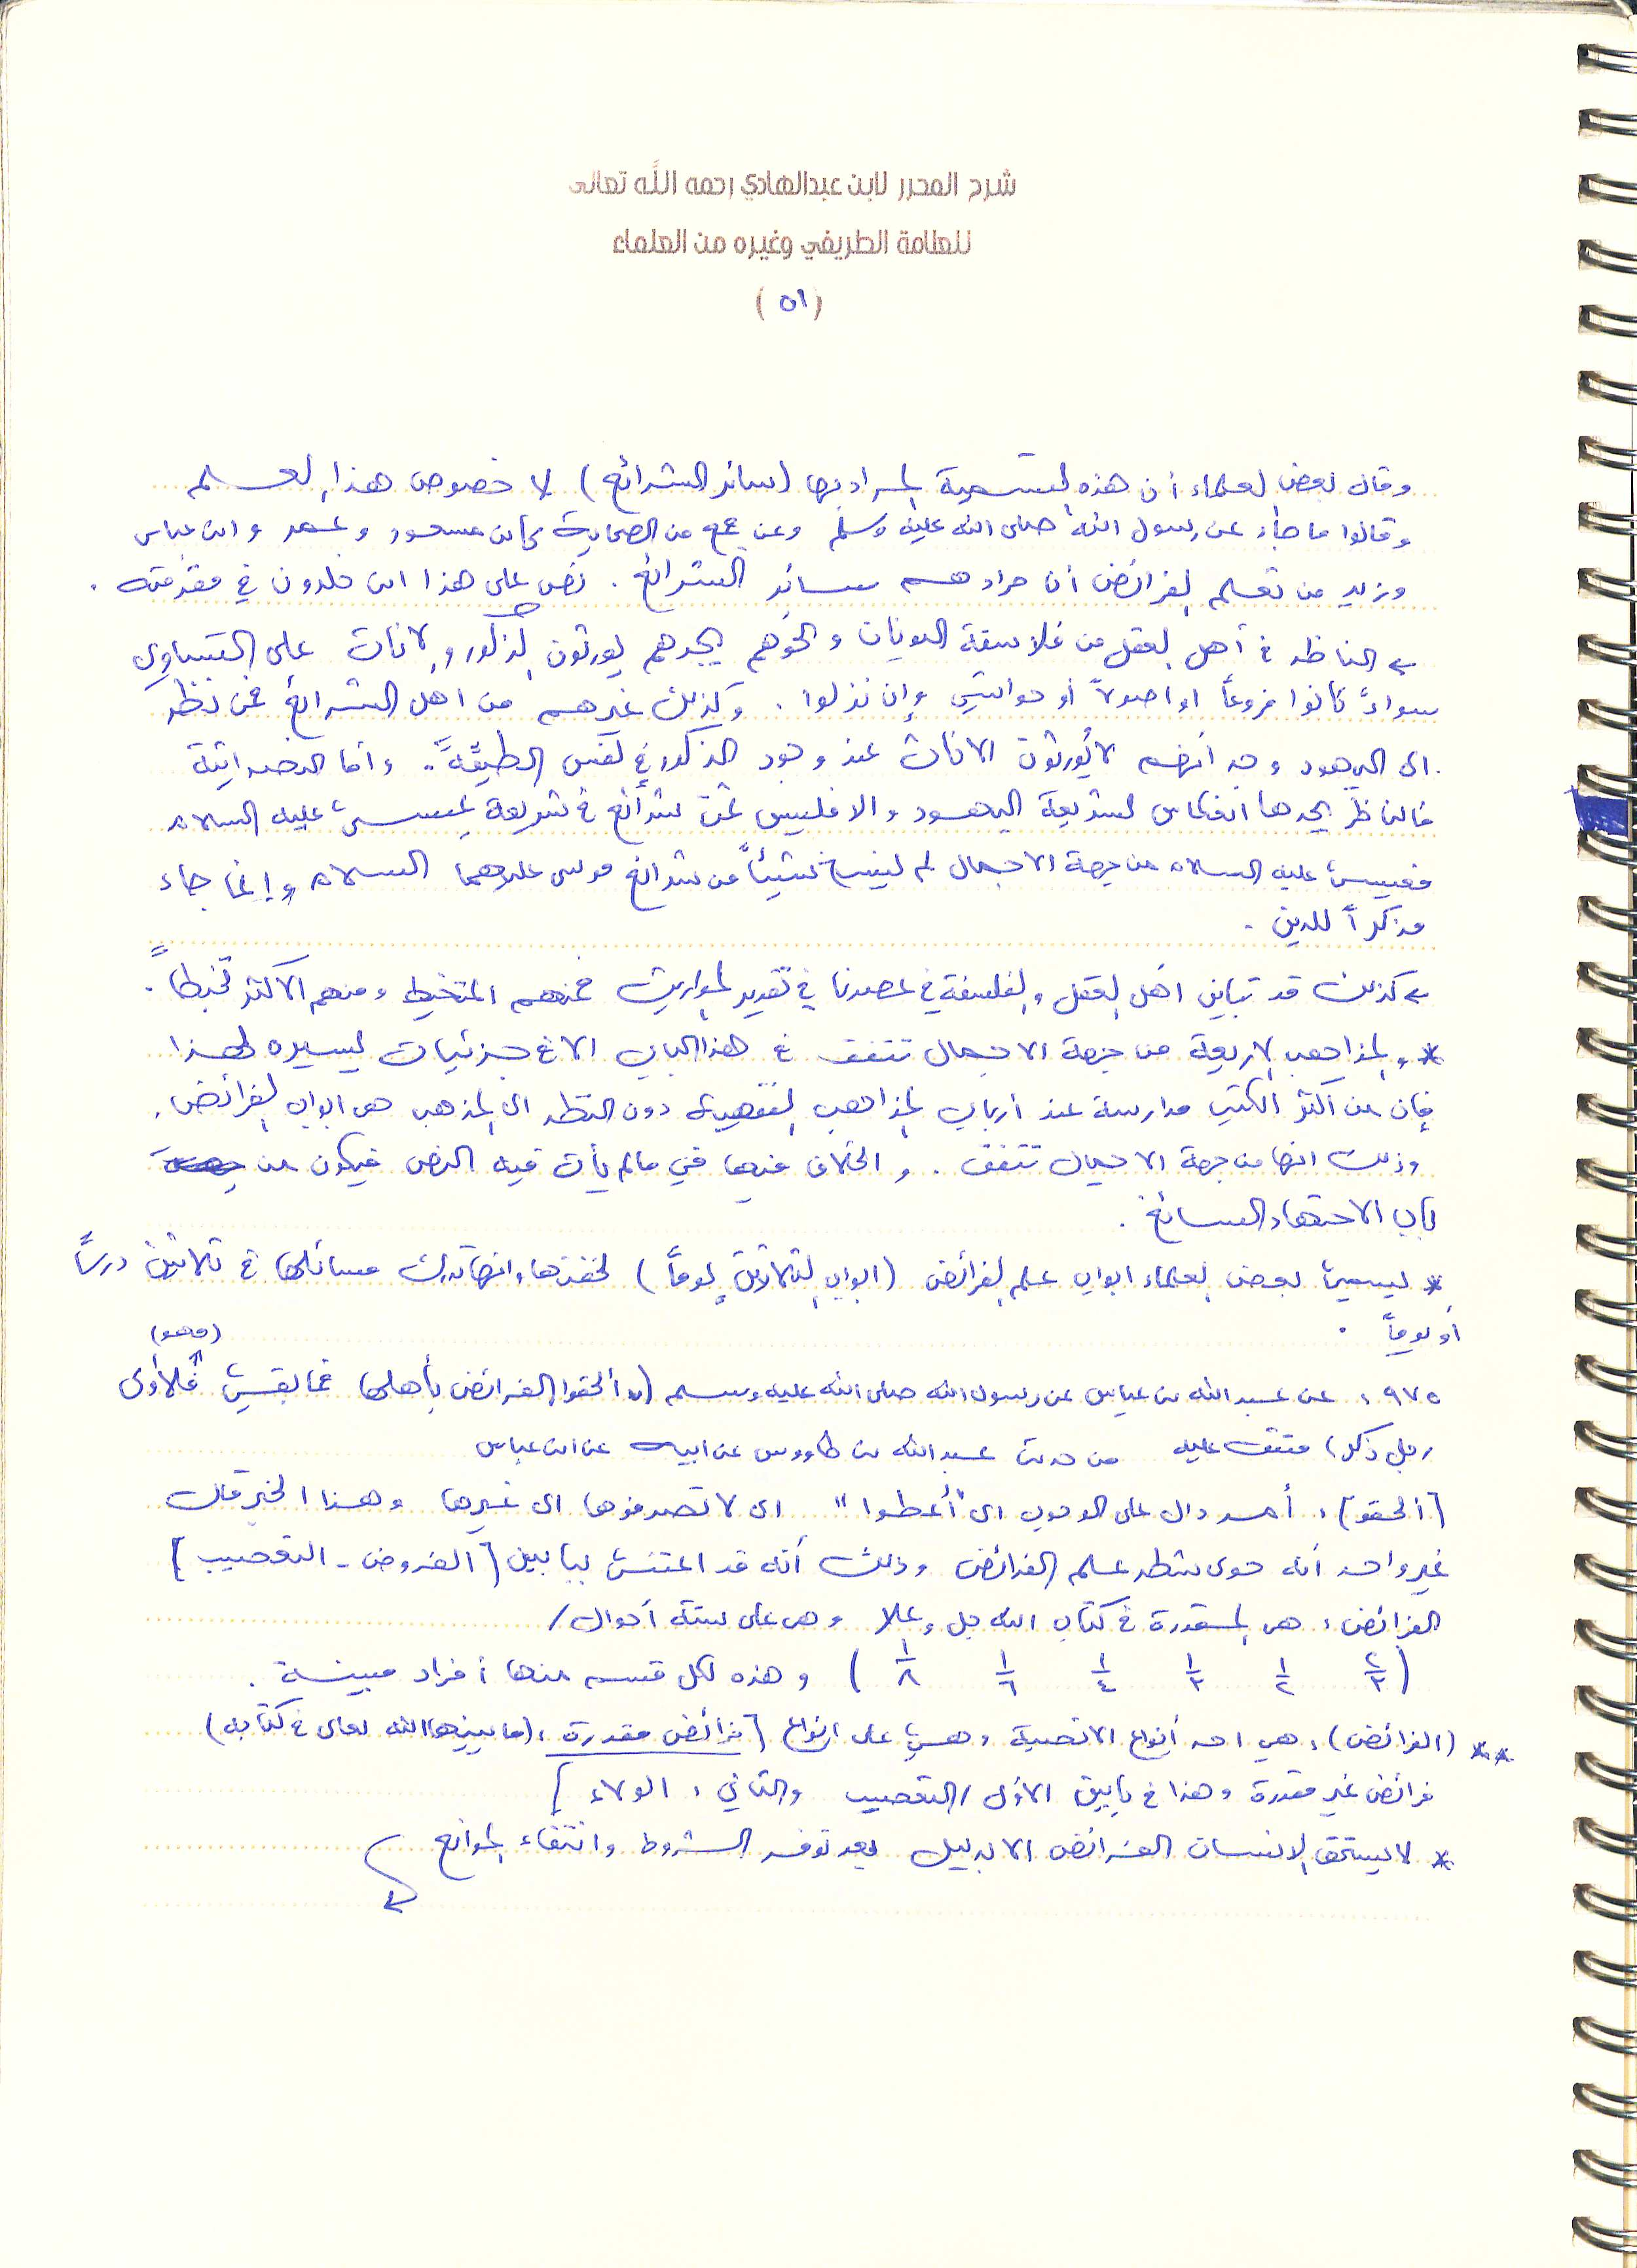 شرح المحرر لابن عبدالهادي رحمه الله تعالى
للعلامة الطريفي وغيره من العلماء
(٥١)
وقال بعض العلماء أن هذه التسمية المراد بها (سائر الشرائع) لا خصوص هذا العلم
وقالوا ما جاء عن رسول الله صلى الله عليه وسلم وعن جمع من الصحابة كابن مسعود وعمر وابن عباس
وزيد من تعلم الفرائض أن مرادهم سائر الشرائع . نص على هذا ابن خلدون في مقدمته .
← الناظر في أهل العقل من فلاسفة اليونان ونحوهم يجدهم يورثون الذكور والاناث على التساوي
سواءً كانوا فروعاً او اصولاً أو حواشي وإن نزلوا . وكذلك غيرهم من أهل الشرائع فمن نظر
الى اليهود وجد أنهم لا يُورثون الاناث عند وجود الذكور في نفس الطبقة . وأما النصرانية
فالناظر يجدها انعكاس لشريعة اليهود والا فليس ثمَّ شرائع في شريعة عيسى عليه السلام
فعيسى عليه السلام من جهة الاجمال لم ينسخ شيئاً من شرائع موسى عليهما السلام وإنما جاء
مذكراً للدين .
← كذلك قد تباين أهل العقل والفلسفة في عصرنا في تقدير المواريث فمنهم المتخبط ومنهم الاكثر تخبطاً .
* والمذاهب الاربعة من جهة الاجمال تتفق في هذا الباب الا في جزئيات يسيره لهذا
فإن من أكثر الكتب مدارسة عند أرباب المذاهب الفقهية دون النظر الى المذهب هي ابواب الفرائض .
وذلك انها من جهة الاجمال تتفق . والخلاف فيها في مالم يأت فيه النص فيكون من
باب الاجتهاد السائغ .
* يسمي بعض العلماء ابواب علم الفرائض (ابواب الثلاثين يوماً) لخفتها وانها تدرك مسائلها في ثلاثين درساً
أو يوماً .
(فهو)
٩٧٥ : عن عبدالله بن عباس عن رسول الله صلى الله عليه وسلم (( ألحقوا الفرائض بأهلها فما بقي فلأولى
رجل ذكر)) متفق عليه من حديث عبدالله بن طاووس عن ابيه عن ابن عباس
[ألحقو] : أمر دال على الوجوب اى "أعطوا" اى لا تصرفوها الى غيرها وهذا الخبر قال
غير واحد أنه حوى شطر علم الفرائض وذلك أنه قد اعتنى ببابين [الفروض - التعصيب]
الفرائض : هي المقدرة في كتاب الله جل وعلا وهي على ستة أحوال /
(٢/٣ ١/٢ ١/٣ ١/٤ ١/٦ ١/٨) وهذه لكل قسم منها أفراد مبينة .
** (الفرائض) : هي احد أنواع الانصبة وهي على انواع [فرائض مقدرة : (ما بينها الله تعالى في كتابه)
فرائض غير مقدرة وهذا في بابين الأول / التعصيب والثاني : الولاء]
* لا يستحق الانسان الفرائض الا بدليل بعد توفر الشروط وانتفاء الموانع